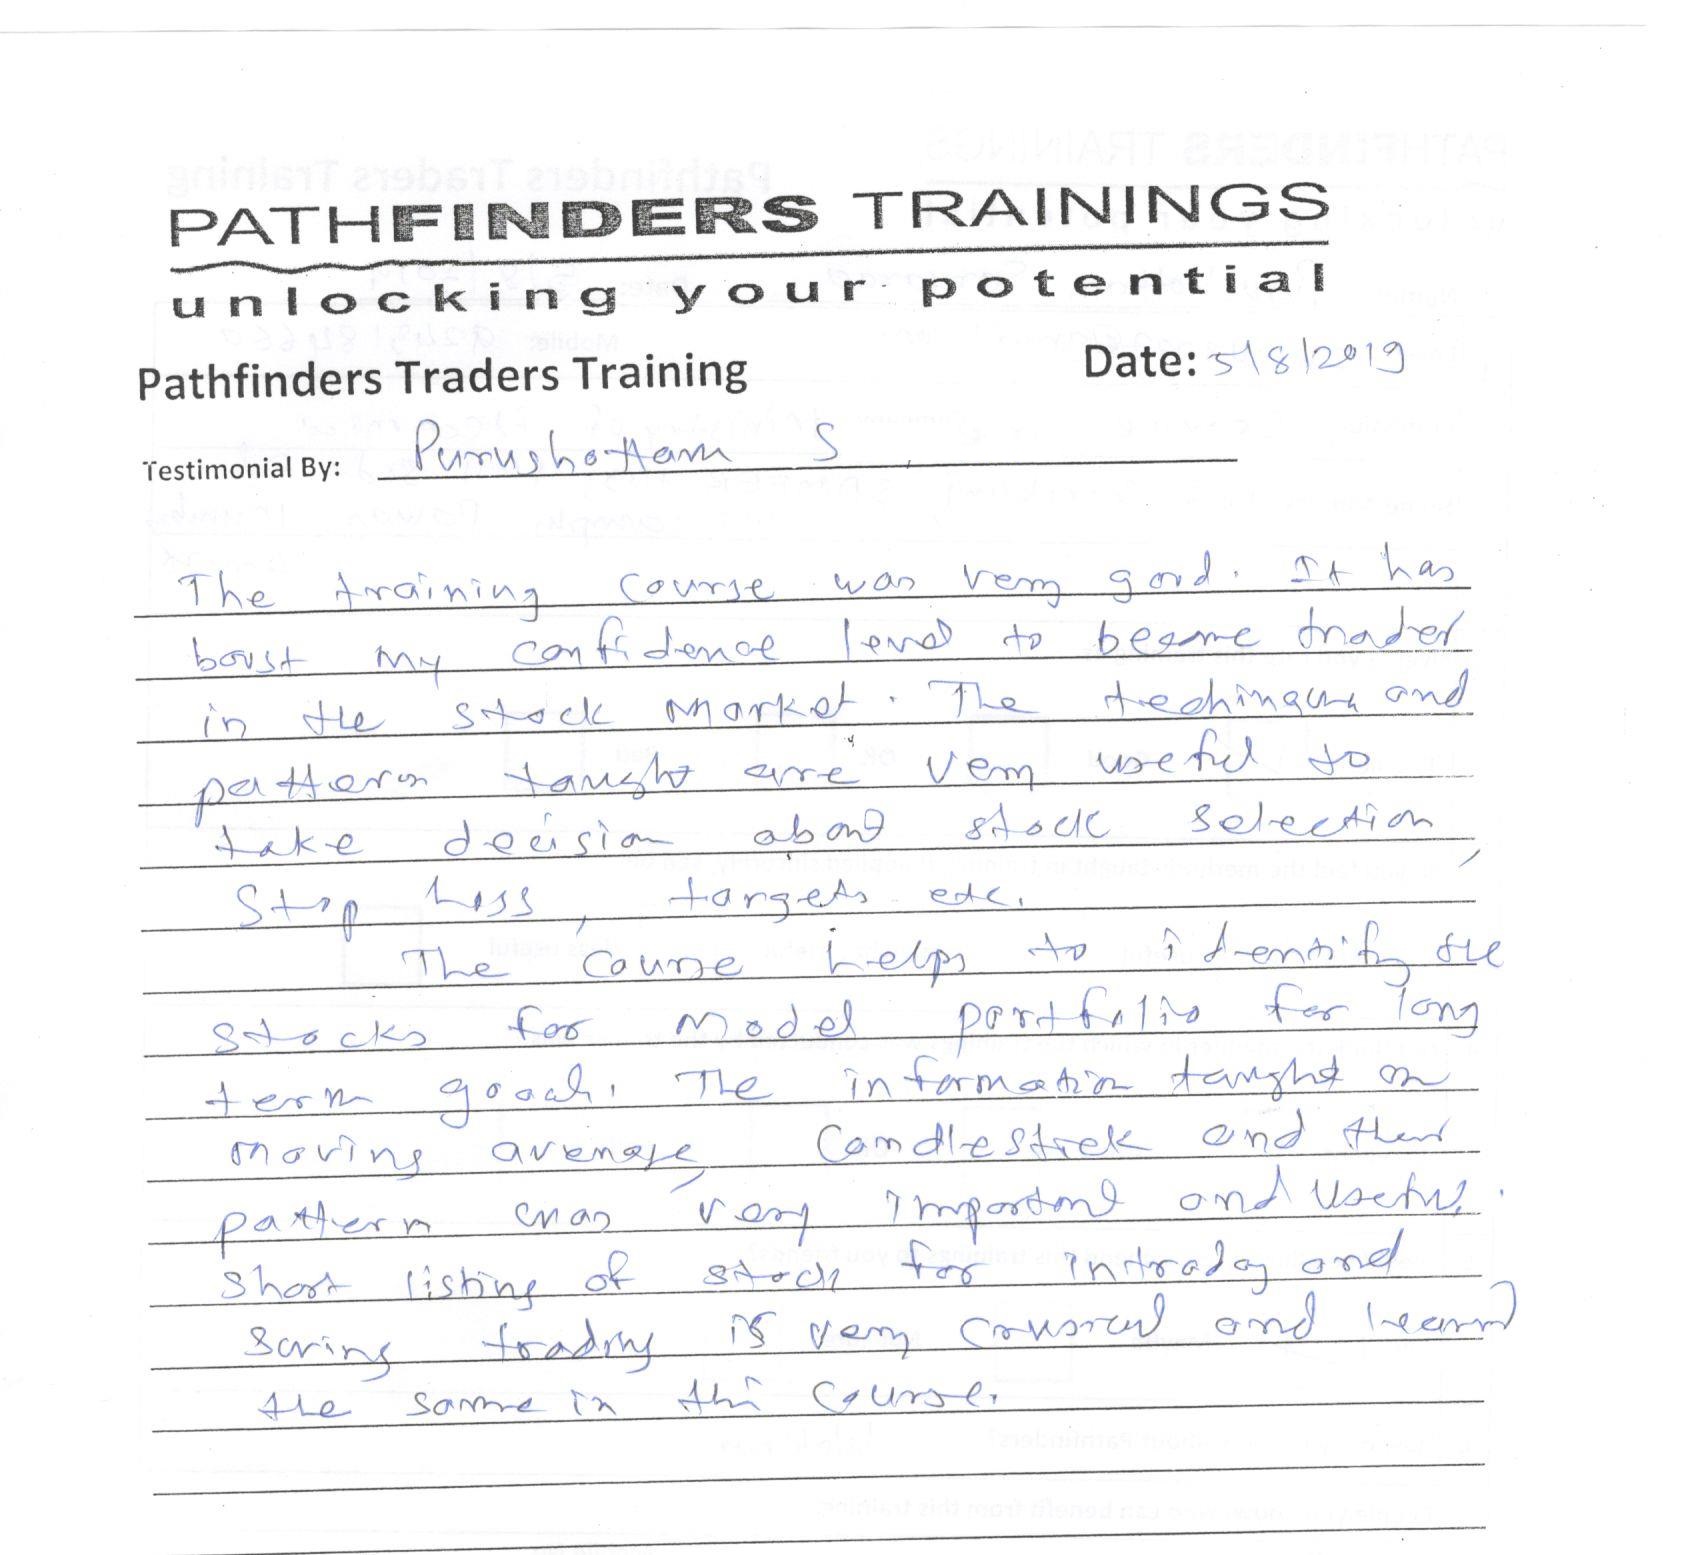 PATHFINDERS TRAININGS
unlocking your potential
Pathfinders Traders Training
Date: 5/8/2019
Testimonial By: Purushottam S
The training course was very good. It has
boust my confidence level to become trader
in the stock market. The and
pattern taught are very useful to
take decision about stock selection,
Stop Loss, targets etc.
The course helps to identify the
stocks for model portfolio for long
term The information taught on
moving average, Candlestick and their
pattern was very important and useful.
Short listing of stock for intraday and
trading is very and learnt
the same in this course.